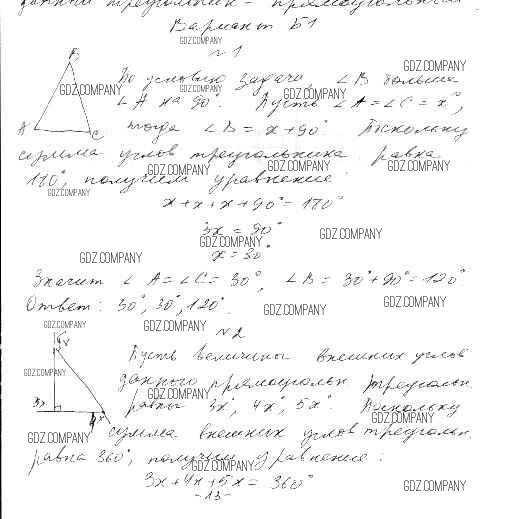 данный треугольник - прямоугольный
Вариант Б1
GDZ.COMPANY
№1
B
GDZ.COMPANY
По условию задачи, ∠B больше
GDZ.COMPANY GDZ.COMPANY GDZ.COMPANY
∠A на 90°. Пусть ∠A = ∠C = x°,
A C тогда ∠B = x + 90°. Поскольку
GDZ.COMPANY
сумма углов треугольника равна
GDZ.COMPANY GDZ.COMPANY GDZ.COMPANY
180°, получим уравнение:
GDZ.COMPANY
x + x + x + 90° = 180°
3x = 90°
GDZ.COMPANY GDZ.COMPANY
x = 30°
GDZ.COMPANY
Значит ∠A = ∠C = 30°, ∠B = 30° + 90° = 120°
Ответ: 30°, 30°, 120°.
GDZ.COMPANY GDZ.COMPANY
GDZ.COMPANY GDZ.COMPANY
№2
Пусть величины внешних углов
GDZ.COMPANY
данного прямоугольн треугольн.
GDZ.COMPANY
3x
равны 3x°, 4x°, 5x°. Поскольку
GDZ.COMPANY
GDZ.COMPANY
сумма внешних углов треугольн.
равна 360°, получим уравнение:
GDZ.COMPANY
3x + 4x + 5x = 360°
GDZ.COMPANY
-13-